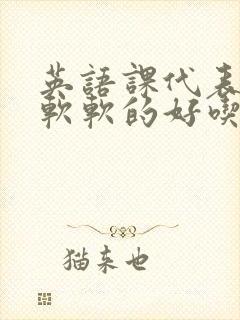 英語課代表
軟軟的好喫
猫来也